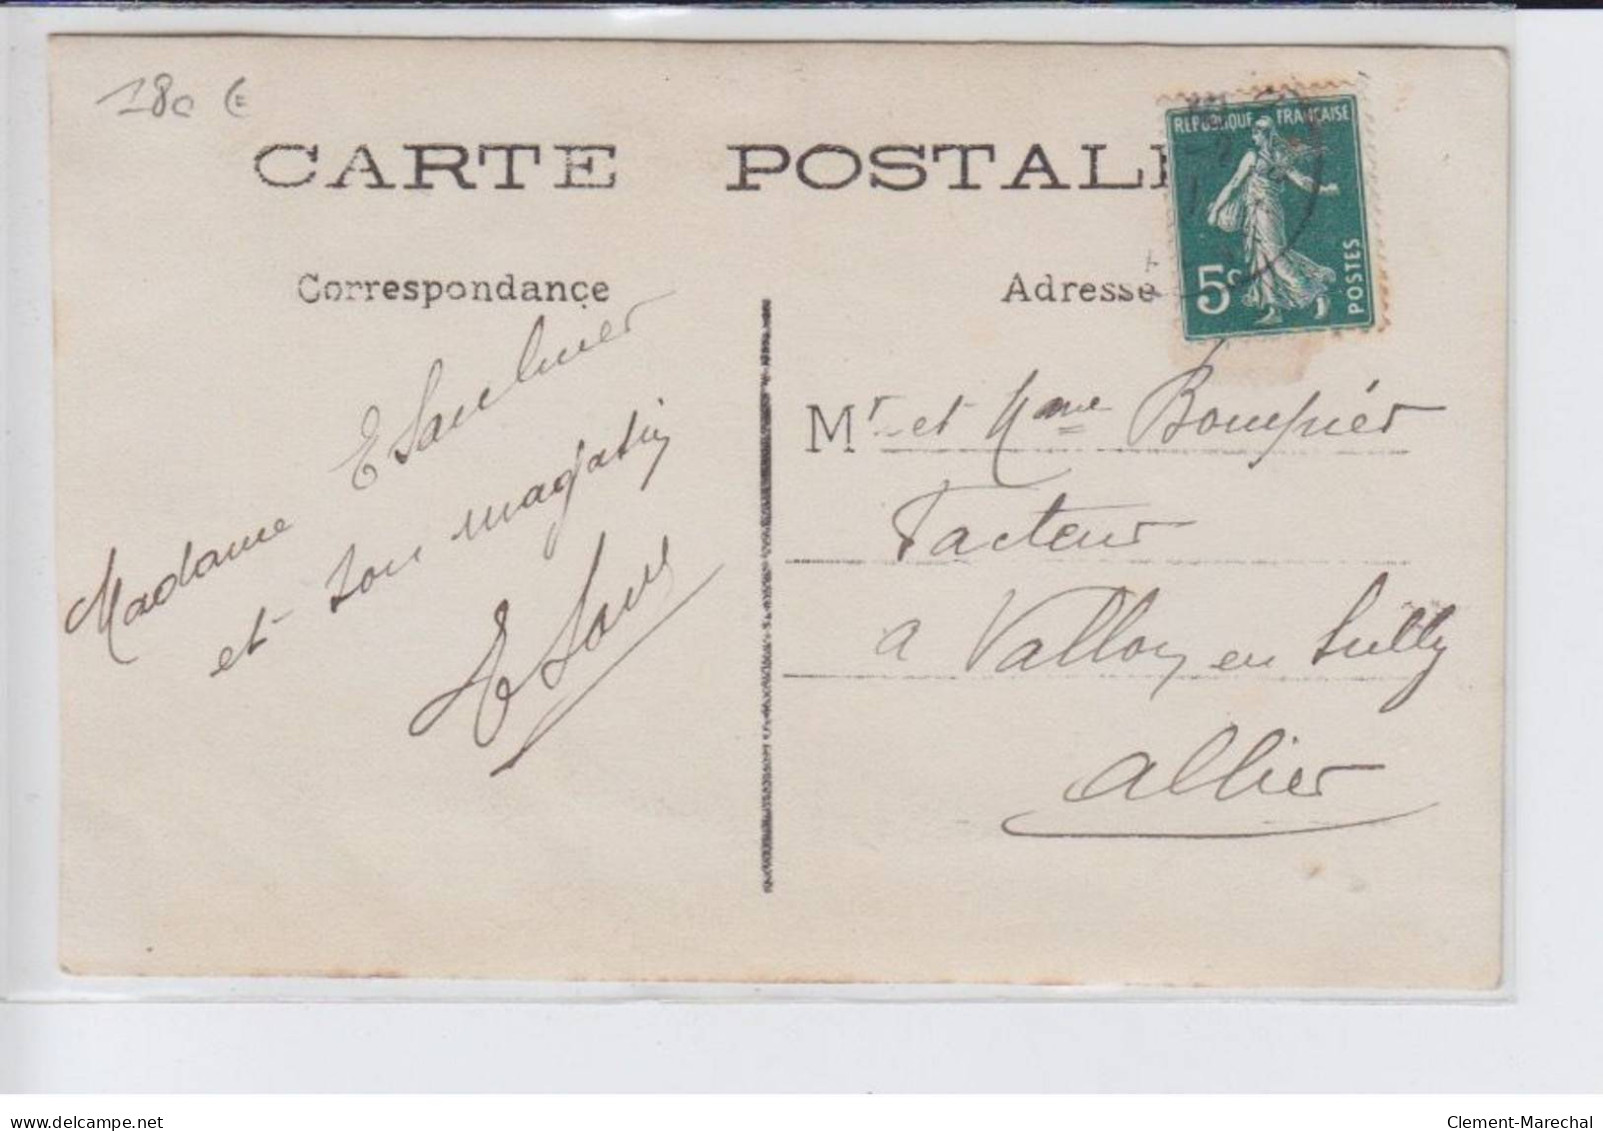 180 €
CARTE POSTALE
REPUBLIQUE FRANÇAISE
5c
POSTES
Correspondance
Adresse
E Saulnier
Madame
et son magasin
Mr et Mme Bompier
Facteur
a Vallon en Sully
Allier
delcampe.net
Clement-Marechal